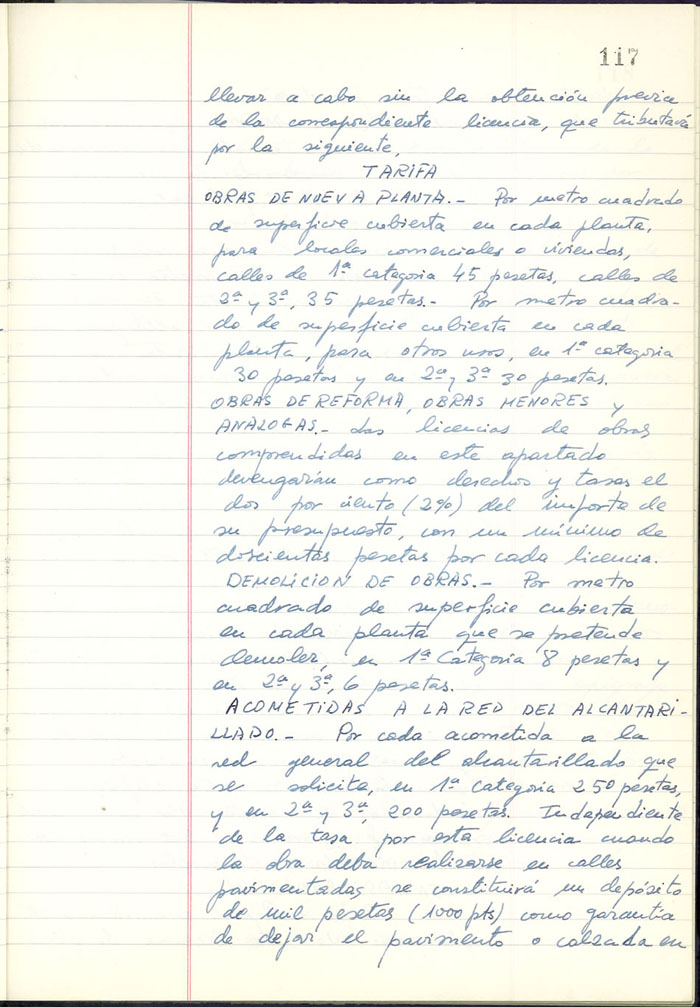 117
llevar a cabo sin la obtención previa
de la correspondiente licencia, que tributará
por la siguiente,
TARIFA
OBRAS DE NUEVA PLANTA.- Por metro cuadrado
de superficie cubierta en cada planta,
para locales comerciales o viviendas,
calles de 1ª categoria 45 pesetas, calles de
2ª y 3ª, 35 pesetas.- Por metro cuadra-
do de superficie cubierta en cada
planta, para otros usos, en 1ª categoria
30 pesetas y en 2ª y 3ª 30 pesetas.
OBRAS DE REFORMA, OBRAS MENORES y
ANALOGAS.- Las licencias de obras
comprendidas en este apartado
devengarán como derechos y tasas el
dos por ciento (2%) del importe de
su presupuesto, con un mínimo de
doscientas pesetas por cada licencia.
DEMOLICION DE OBRAS.- Por metro
cuadrado de superficie cubierta
en cada planta que se pretende
demoler, en 1ª Categoria 8 pesetas y
en 2ª y 3ª, 6 pesetas.
ACOMETIDAS A LA RED DEL ALCANTARI-
LLADO.- Por cada acometida a la
red general del alcantarillado que
se solicita, en 1ª categoria 250 pesetas,
y en 2ª y 3ª, 200 pesetas. Independiente
de la tasa por esta licencia cuando
la obra deba realizarse en calles
pavimentadas se constituirá un depósito
de mil pesetas (1000 pts) como garantía
de dejar el pavimento o calzada en